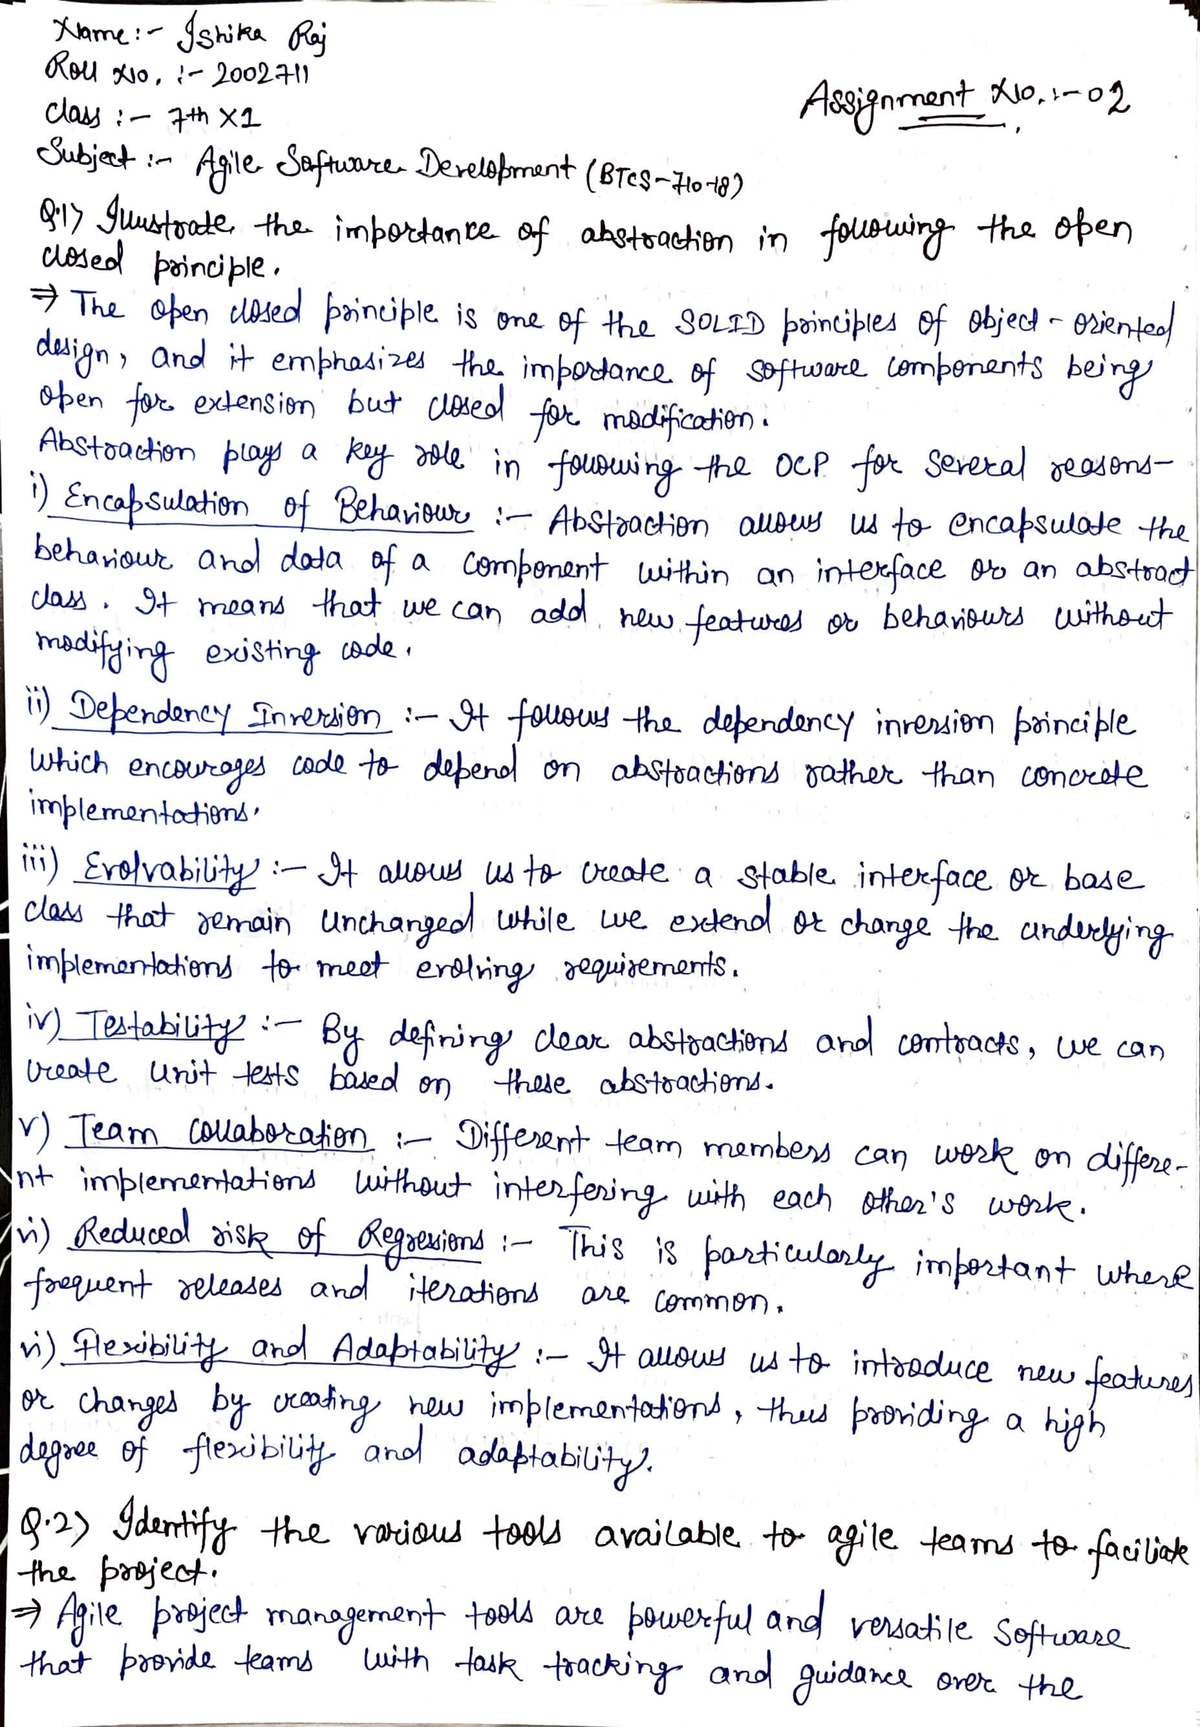 Name :- Ishika Raj
Roll No. :- 2002711
Class :- 7th X1
Assignment No. :- 02
Subject :- Agile Software Development (BTCS-710-18)
Q.1> Illustrate the importance of abstraction in following the open
closed principle.
⇒ The open closed principle is one of the SOLID principles of object-oriented
design, and it emphasizes the importance of software components being
open for extension but closed for modification.
Abstraction plays a key role in following the OCP for several reasons-
i) Encapsulation of Behaviour :- Abstraction allows us to encapsulate the
behaviour and data of a component within an interface or an abstract
class. It means that we can add new features or behaviours without
modifying existing code.
ii) Dependency Inversion :- It follows the dependency inversion principle
which encourages code to depend on abstractions rather than concrete
implementations.
iii) Evolvability :- It allows us to create a stable interface or base
class that remain unchanged while we extend or change the underlying
implementations to meet evolving requirements.
iv) Testability :- By defining clear abstractions and contracts, we can
create unit tests based on these abstractions.
v) Team collaboration :- Different team members can work on differe-
nt implementations without interfering with each other's work.
vi) Reduced risk of Regressions :- This is particularly important where
frequent releases and iterations are common.
vi) Flexibility and Adaptability :- It allows us to introduce new features
or changes by creating new implementations, thus providing a high
degree of flexibility and adaptability.
Q.2> Identify the various tools available to agile teams to faciliate
the project.
⇒ Agile project management tools are powerful and versatile software
that provide teams with task tracking and guidance over the